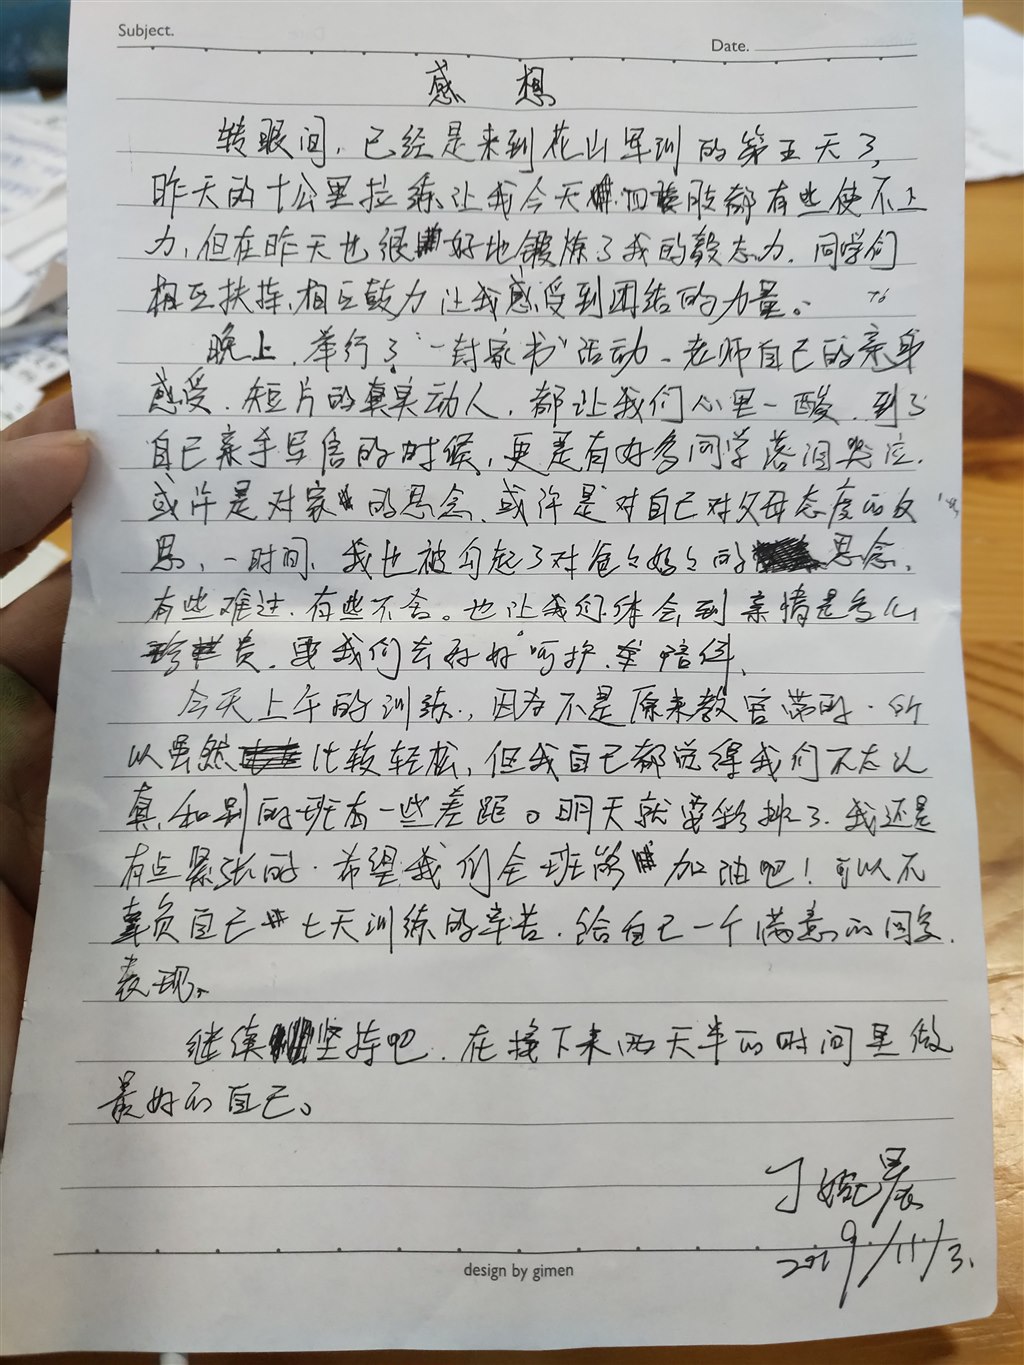 Subject.
Date.
感 想
转眼间,已经是来到花山军训的第五天了,
昨天的十公里拉练让我今天四肢都有些使不上
力,但在昨天也很好地锻炼了我的毅志力。同学们
相互扶持、相互鼓力让我感受到团结的力量。
晚上,举行了“一封家书”活动。老师自己的亲身
感受,短片的真实动人,都让我们心里一酸,到了
自己亲手写信的时候,更是有好多同学落泪哭泣。
或许是对家的思念,或许是对自己对父母态度的反
思,一时间,我也被勾起了对爸々妈々的思念,
有些难过,有些不舍。也让我们体会到亲情是多么
珍贵,要我们去好好呵护、陪伴。
今天上午的训练,因为不是原来教官带的,所
以虽然比较轻松,但我自己都觉得我们不太认
真,和别的班有一些差距。明天就要彩排了,我还是
有点紧张的,希望我们全班能加油吧!可以不
辜负自己七天训练的辛苦,给自己一个满意的
表现。
继续坚持吧,在接下来两天半的时间里做
最好的自己。
丁婉晨
2019/11/3.
design by gimen